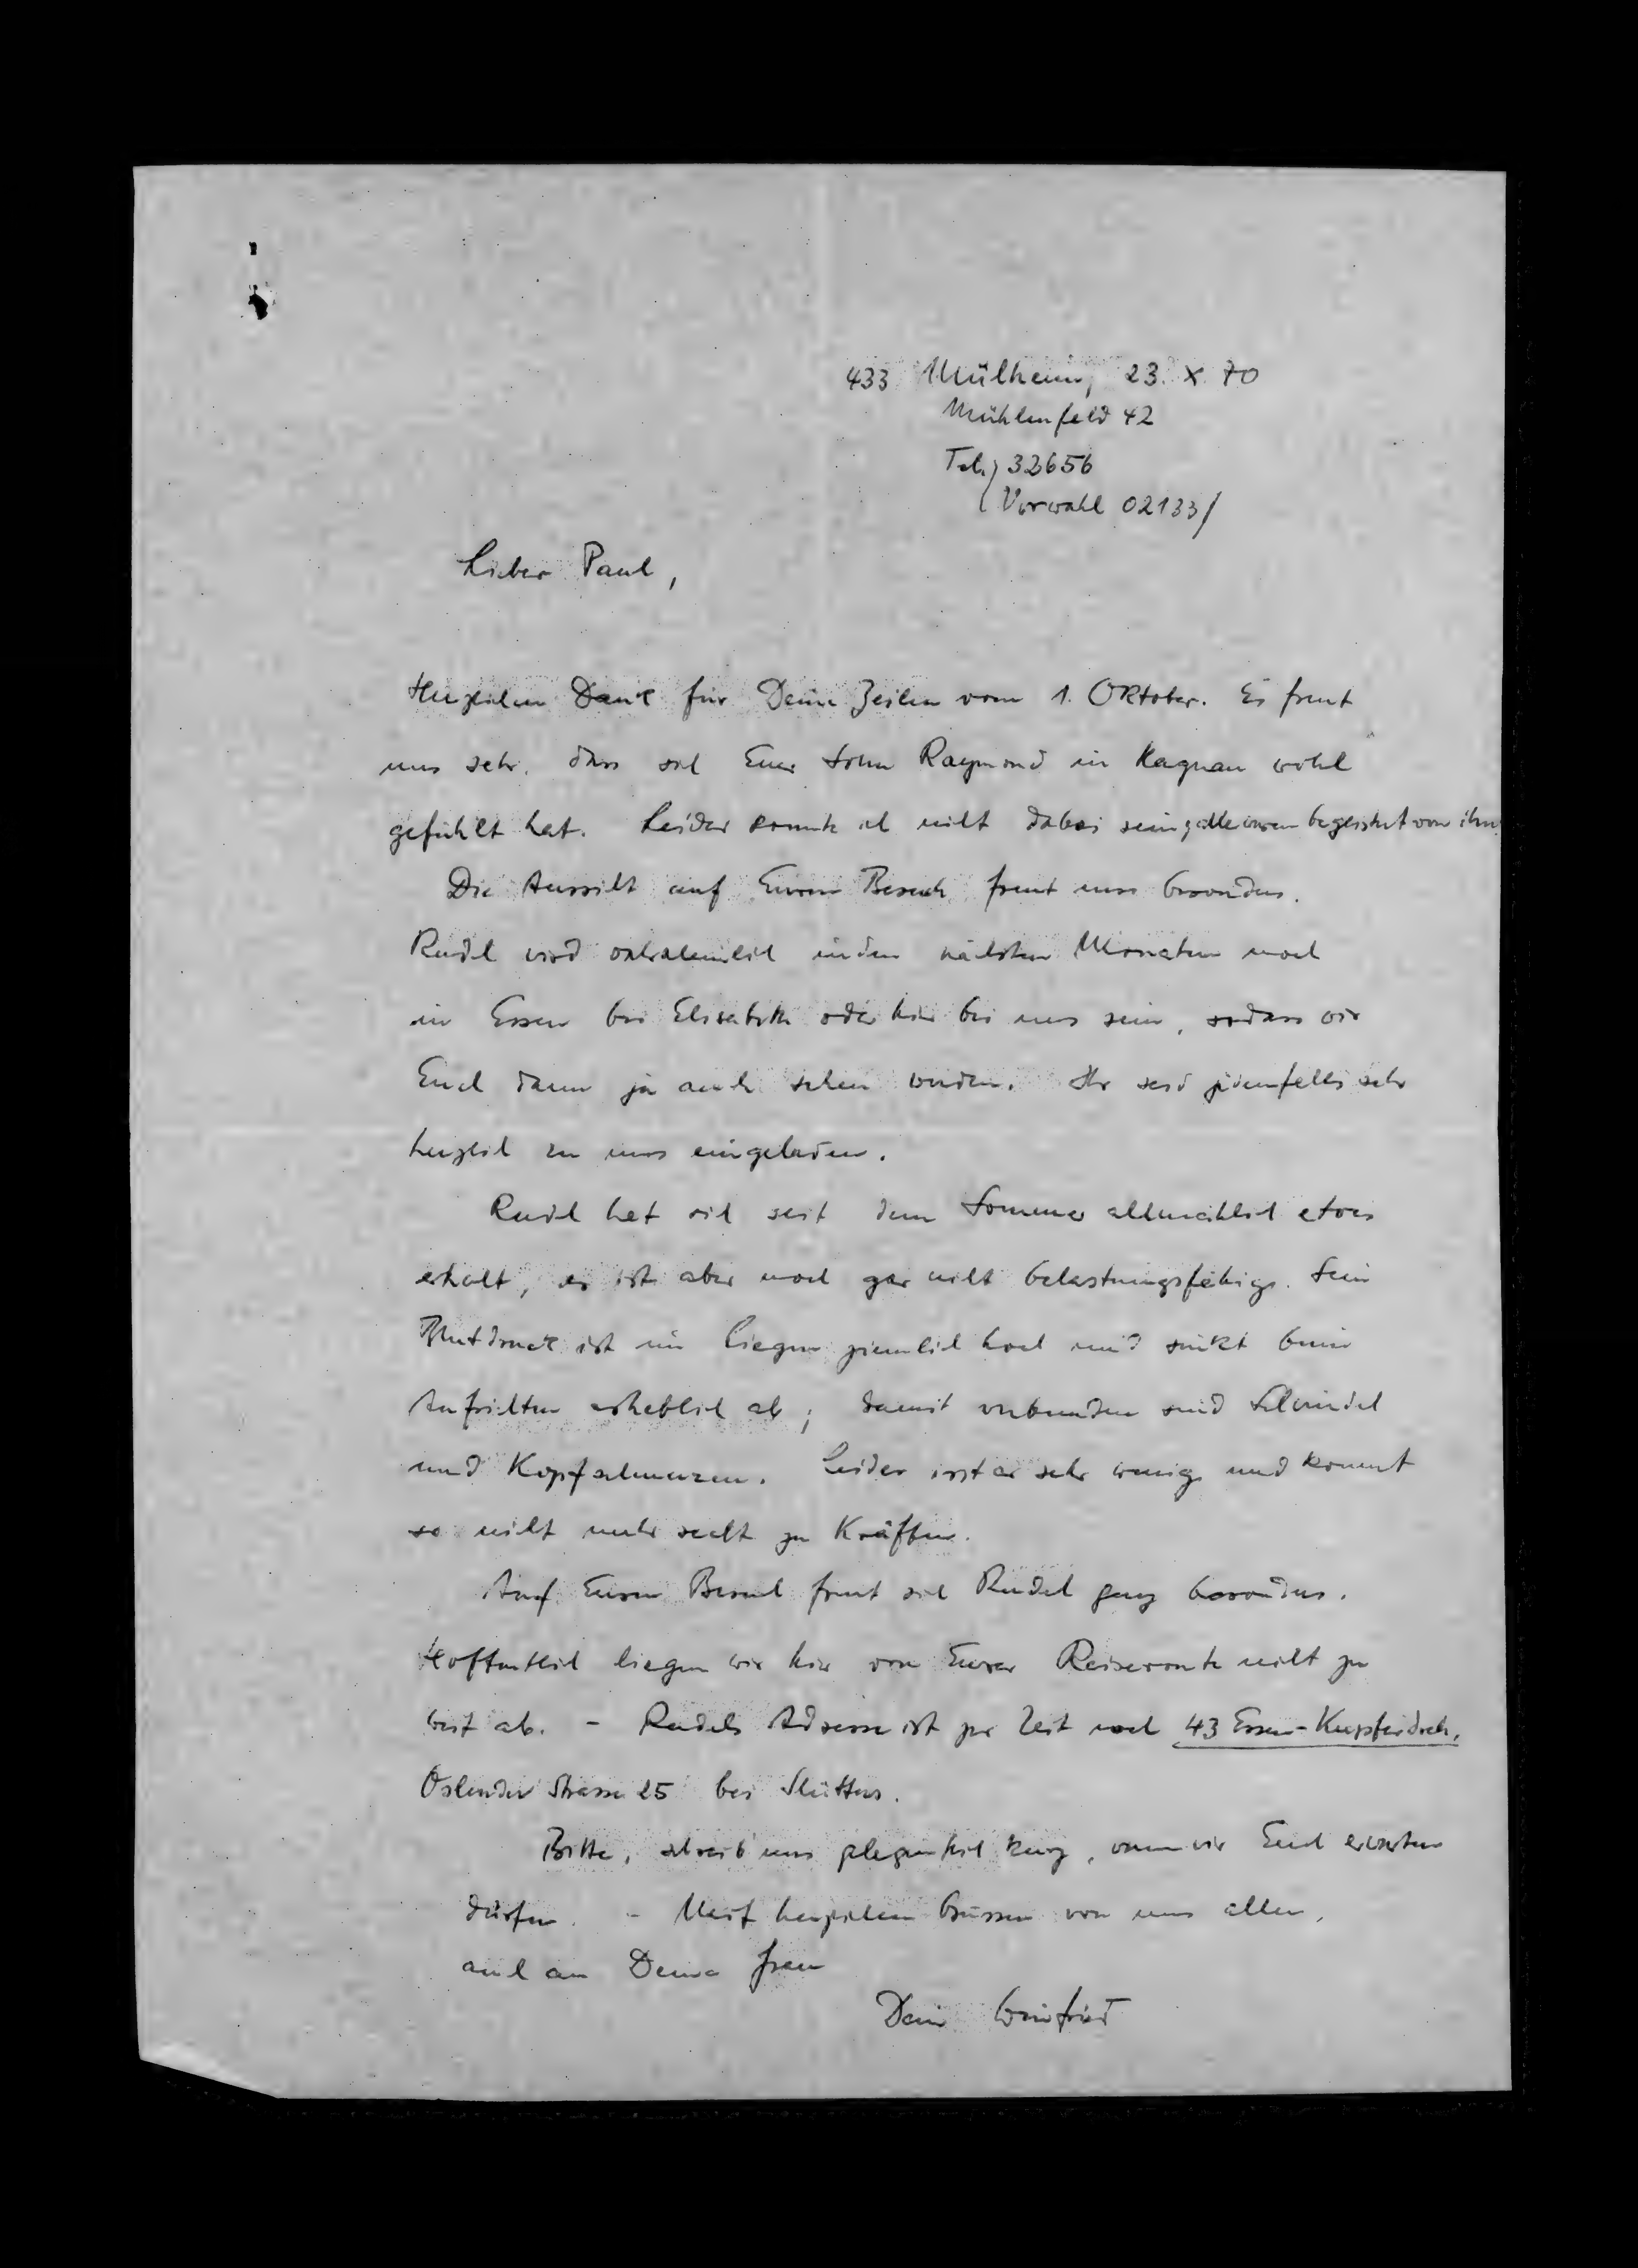 433 Mülheim, 23. X. 70
Mühlenfeld 42
Tel.) 32656
(Vorwahl 02133)
Lieber Paul,
Herzlichen Dank für Deine Zeilen vom 1. Oktober. Es freut
uns sehr, dass sich Euer Sohn Raymond in Hagnau wohl
gefühlt hat. Leider konnte ich nicht dabei sein, alle waren begeistert von ihm.
Die Aussicht auf Euren Besuch freut uns besonders.
Rudel wird wahrscheinlich in den nächsten Monaten noch
in Essen bei Elisabeth oder hier bei uns sein, sodass wir
Euch dann ja auch sehen würden. Ihr seid jedenfalls sehr
herzlich zu uns eingeladen.
Rudel hat sich seit dem Sommer allmählich etwas
erholt, er ist aber noch gar nicht belastungsfähig. Sein
Blutdruck ist im Liegen ziemlich hoch und sinkt beim
Aufrichten erheblich ab; damit verbunden sind Schwindel
und Kopfschmerzen. Leider isst er sehr wenig und kommt
so nicht mehr recht zu Kräften.
Auf Euren Besuch freut sich Rudel ganz besonders.
Hoffentlich liegen wir hier von Eurer Reiseroute nicht zu
weit ab. - Rudels Adresse ist zur Zeit noch 43 Essen-Kupferdreh,
Strasse 25 bei
Bitte, schreib uns gelegentlich kurz, wann wir Euch erwarten
dürfen. - Mit herzlichen Grüssen von uns allen,
auch an Deine Frau
Dein Winfried